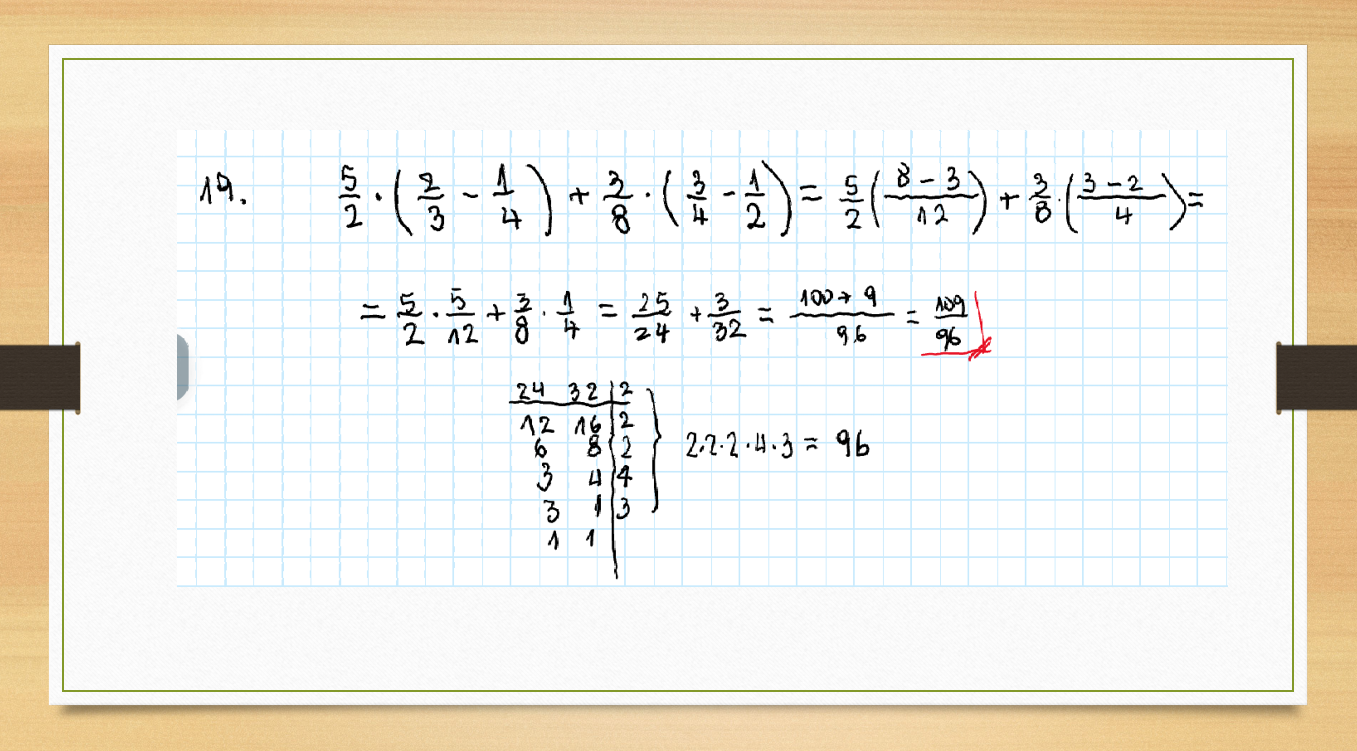 19. 5/2 · (2/3 - 1/4) + 3/8 · (3/4 - 1/2) = 5/2 (8 - 3/12) + 3/8 · (3 - 2/4) =
= 5/2 · 5/12 + 3/8 · 1/4 = 25/24 + 3/32 = 100 + 9/96 = 109/96
24 32 | 2
12 16 | 2
6 8 | 2 } 2·2·2·4·3 = 96
3 4 | 4
3 1 | 3
1 1 |